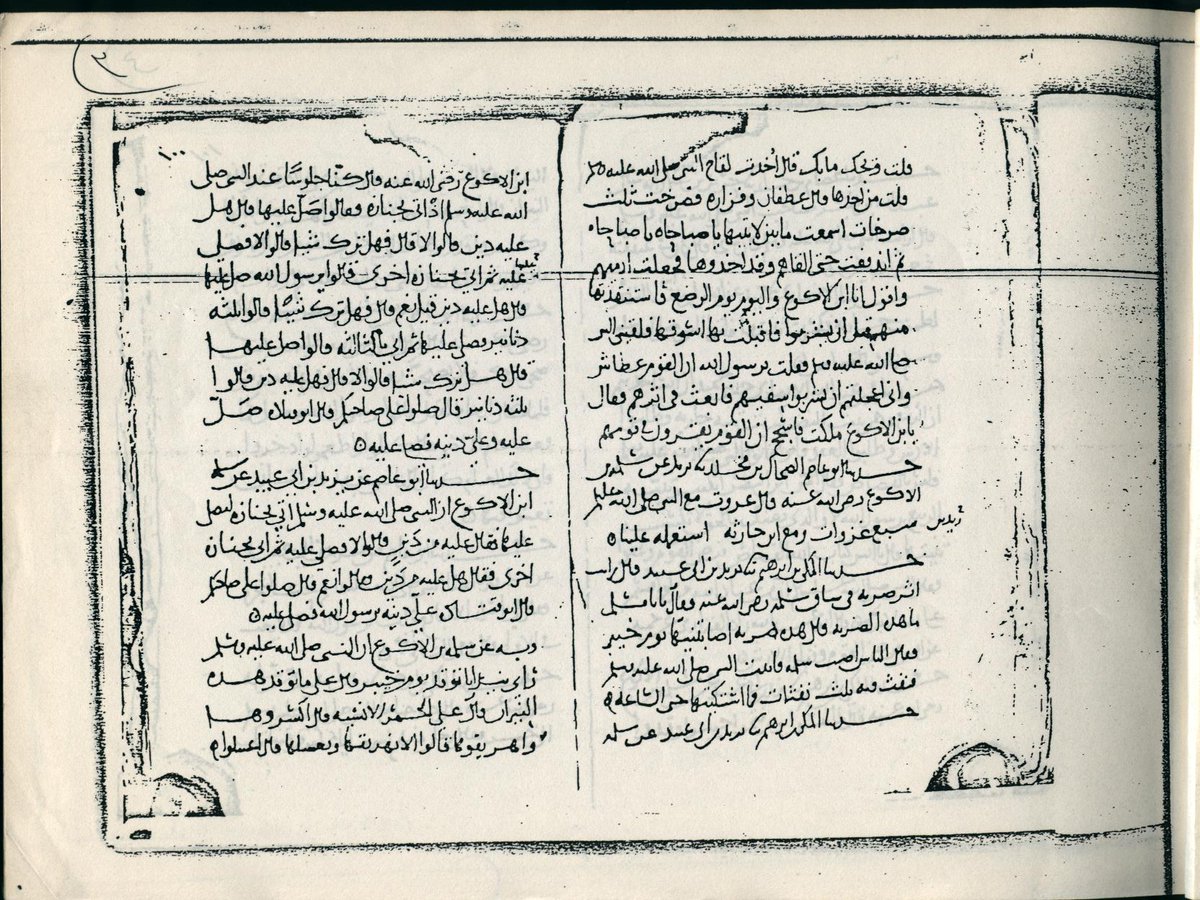 ٣
قلت ويحك مابك قال أخدت لقاح النبي صلى الله عليه وسلم
قلت من اخدها قال غطفان وفزاره فصرخت ثلث
صرخات اسمعت مابين لابتيها يا صباحاه يا صباحاه
ثم اندفعت حتى القاهم وقد اخدوها فجعلت ارميهم
واقول انا ابن الاكوع واليوم يوم الرضع فاستنقدتها
منهم قبل ان يشربوا فاقبلت بها اسوقها فلقيني النبي
صلى الله عليه وسلم فقلت يرسول الله ان القوم عطاش
واني اعجلتهم ان يشربوا سقيهم فابعث في اثرهم فقال
يابن الاكوع ملكت فاسجح ان القوم يقرون في قومهم
حدثنا ابو عاصم الضحاك بن مخلد ثنا يزيد عن سلمه بن
الاكوع رضى الله عنه قال غزوت مع النبي صلى الله عليه وسلم
سبع غزوات ومع ابن حارثه استعمله علينا
زيد بن
حدثنا المكي بن ابرهيم ثنا يزيد بن ابي عبيد قال رايت
اثر ضربه في ساق سلمه رضى الله عنه فقال يابا مسلم
ما هده الضربه قال هده ضربه اصابتنيها يوم خيبر
فقال الناس اصيب سلمه فاتيت النبي صلى الله عليه وسلم
فنفث فيه ثلث نفثات فما اشتكيتها حتى الساعه
حدثنا المكي بن ابرهيم ثنا يزيد بن ابي عبيد عن سلمه
١٠٠
ابن الاكوع رضى الله عنه قال كنا جلوسًا عند النبي صلى
الله عليه وسلم اذ اتي بجنازه فقالوا صل عليها قال هل
عليه دين قالوا لا قال فهل ترك شيئا قالوا لا فصلى
عليه ثم اتي بجنازه اخرى فقالوا يرسول الله صل عليها
قال هل عليه دين قيل نعم قال فهل ترك شيئا قالوا ثلثه
دنانير فصلى عليها ثم اتي بالثالثه قالوا صل عليها
قال هل ترك شيئا قالوا لا قال فهل عليه دين قالوا
ثلثه دنانير قال صلوا على صاحبكم قال ابو قتاده صل
عليه وعلى دينه فصلى عليه
حدثنا ابو عاصم عن يزيد بن ابي عبيد عن سلمه
ابن الاكوع ان النبي صلى الله عليه وسلم أتي بجنازه ليصلي
عليها فقال عليه من دين قالوا لا فصلى عليه ثم اتي بجنازه
اخرى فقال هل عليه من دين قالوا نعم قال صلوا على صاحبكم
قال ابو قتاده علي دينه يرسول الله فصلى عليه
وبه عن سلمه بن الاكوع ان النبي صلى الله عليه وسلم
راى نيرانا توقد يوم خيبر قال على ما توقد هده
النيران قال على الحمر الانسيه قال اكسروها
واهريقوها قالوا الا نهريقها ونغسلها قال اغسلوا